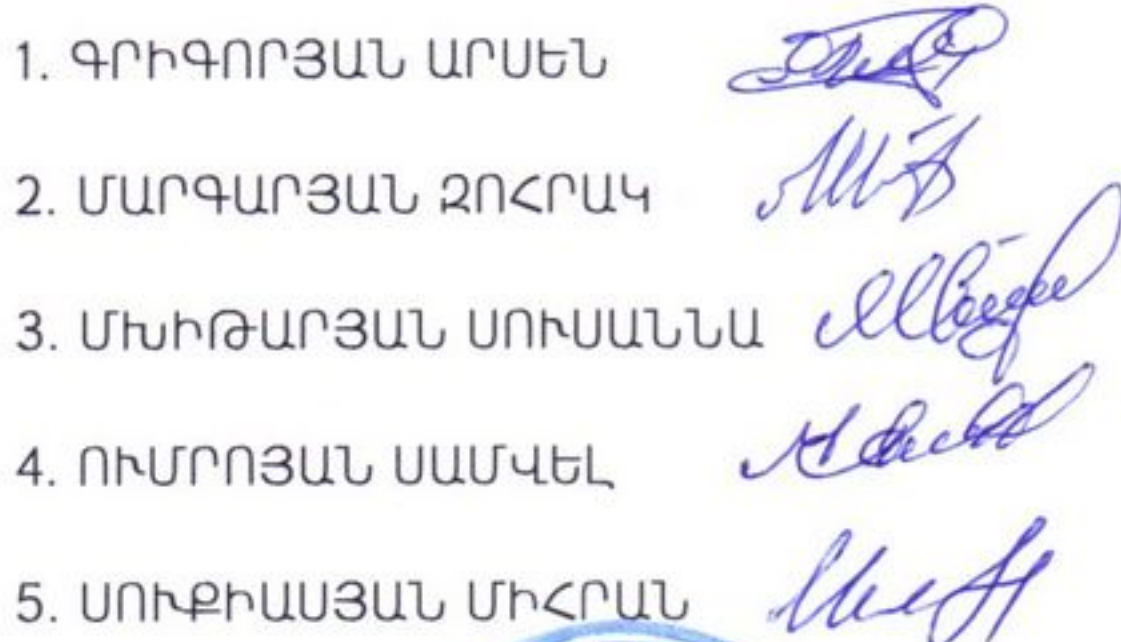 1. ԳՐԻԳՈՐՅԱՆ ԱՐՍԵՆ
2. ՄԱՐԳԱՐՅԱՆ ԶՈՀՐԱԿ
3. ՄԽԻԹԱՐՅԱՆ ՍՈՒՍԱՆՆԱ
4. ՈՒՄՐՈՅԱՆ ՍԱՄՎԵԼ
5. ՍՈՒՔԻԱՍՅԱՆ ՄԻՀՐԱՆ